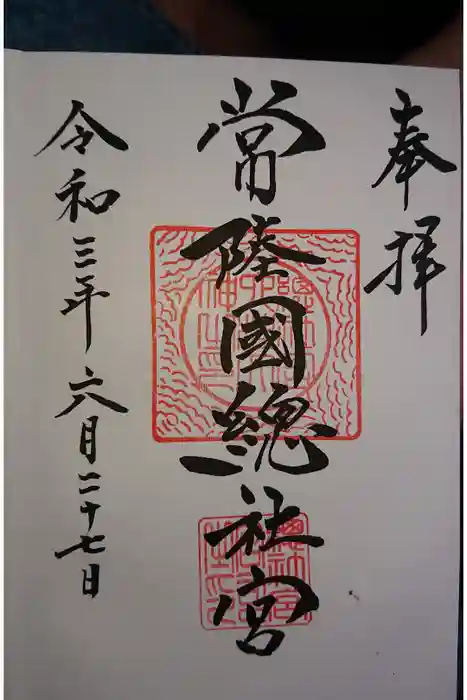 奉拝
常陸國總社宮
令和三年六月二十七日